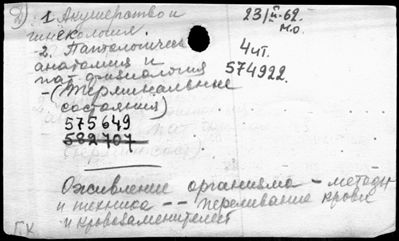 2) 1 Акушерство и
гинекология.
-2. Патологическ
анатомия и
пат. физиология
- (Терминальные
состояния)
575649
582707
23/II-62.
М.О.
4 чт.
574922.
Оживление организма - методы
и техника -- переливание крови
и кровезаменителей
ГК